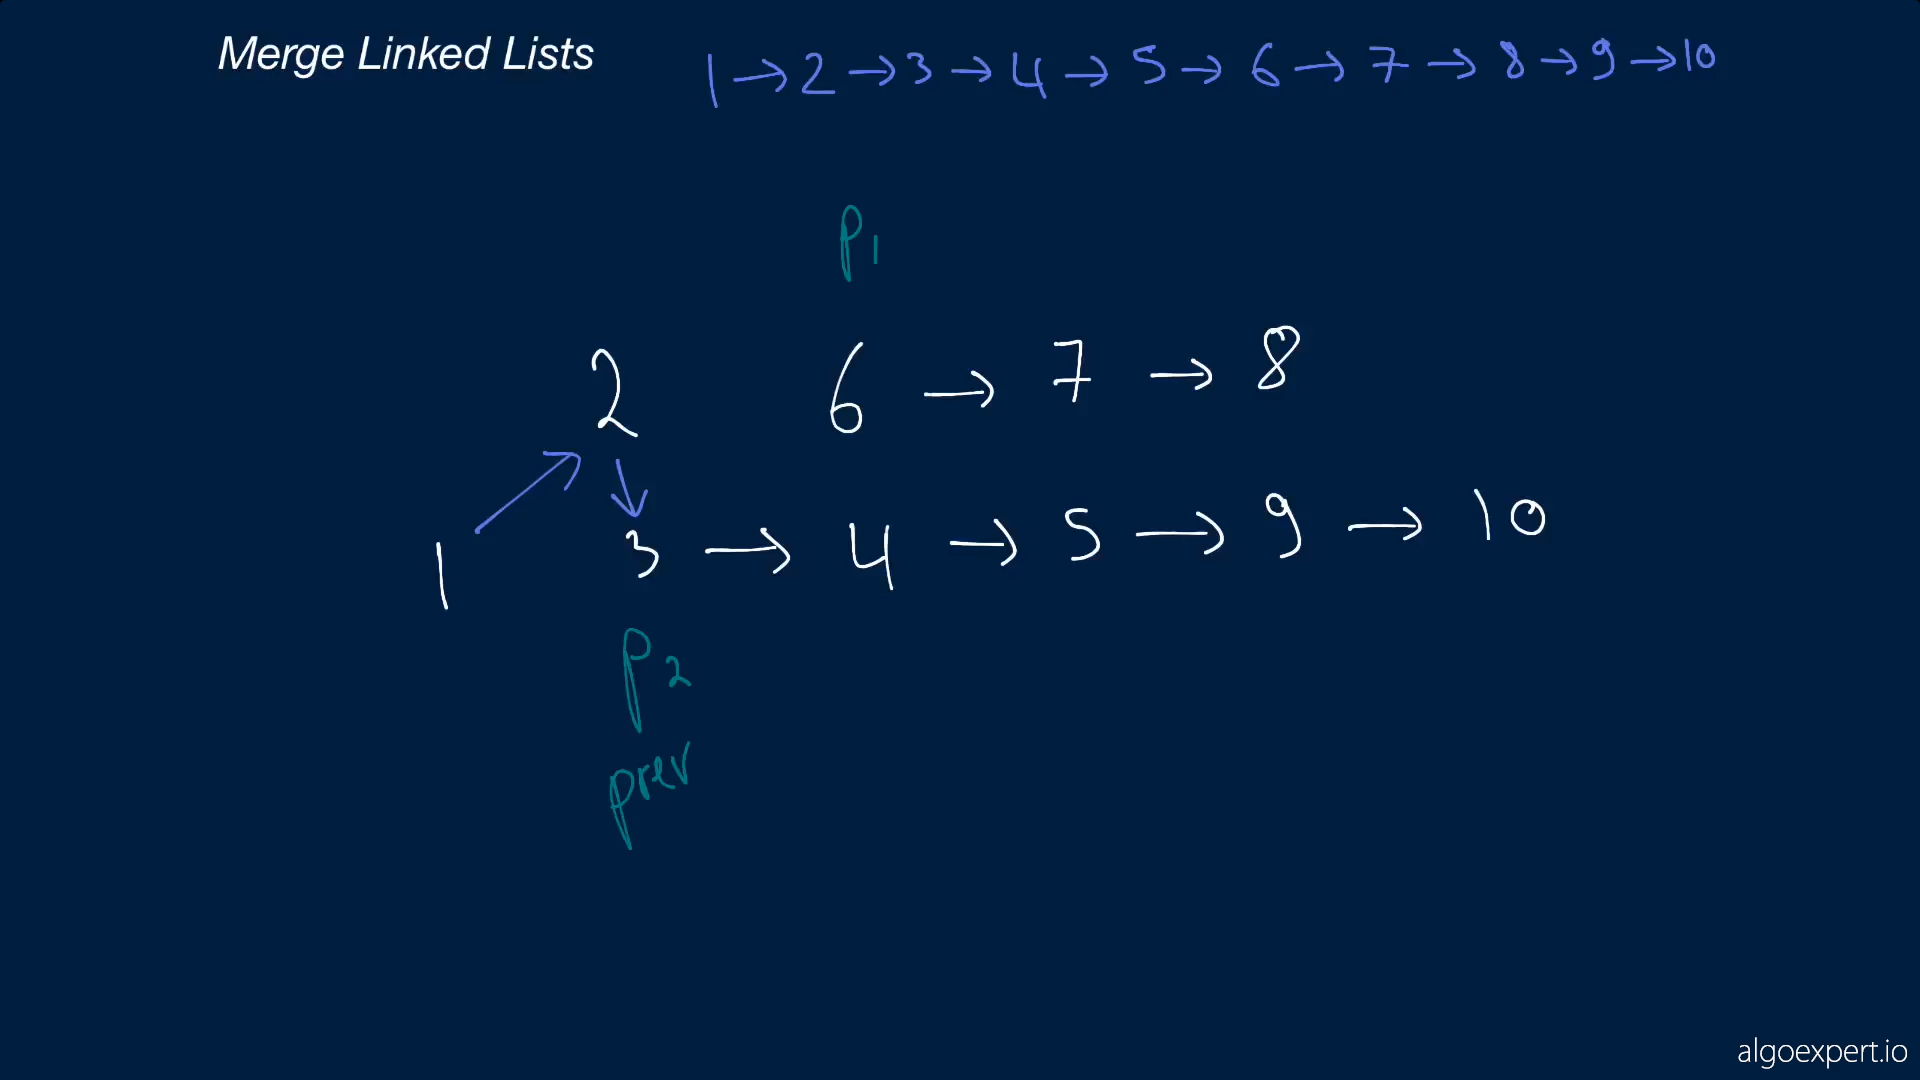 Merge Linked Lists
1 → 2 → 3 → 4 → 5 → 6 → 7 → 8 → 9 → 10
p1
2 6 → 7 → 8
1 3 → 4 → 5 → 9 → 10
p2
prev
algoexpert.io